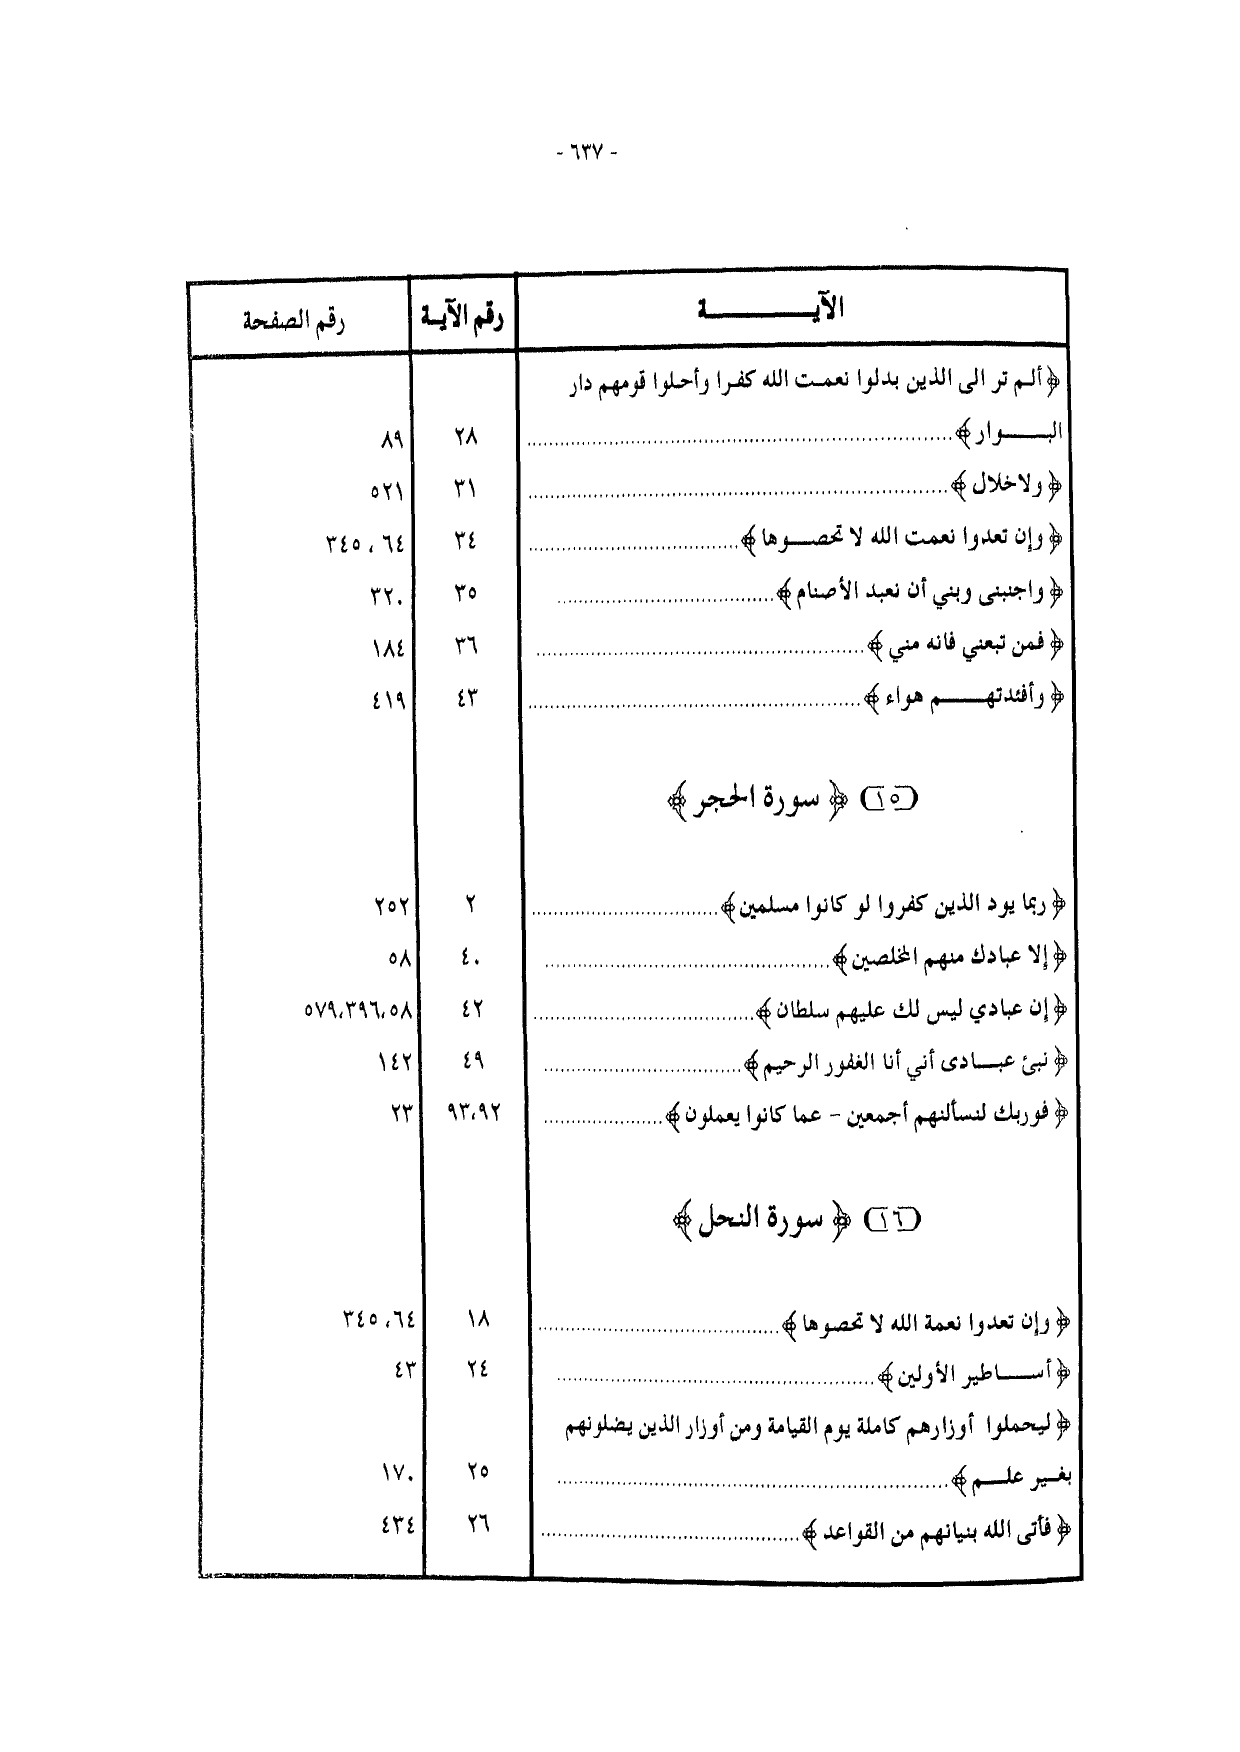 - ٦٣٧ -
الآيـــــــــة رقم الآيـة رقم الصفحة
﴿ ألـم تر الى الذين بدلوا نعمـت الله كفـرا وأحلوا قومهم دار
البـــــوار ﴾ ........ ٢٨ ٨٩
﴿ ولاخلال ﴾ ........ ٣١ ٥٢١
﴿ وإن تعدوا نعمت الله لا تحصـــوها ﴾ ........ ٣٤ ٦٤ ، ٣٤٥
﴿ واجنبنى وبني أن نعبد الأصنام ﴾ ........ ٣٥ ٣٢٠
﴿ فمن تبعني فانه مني ﴾ ........ ٣٦ ١٨٤
﴿ وأفئدتهـــــم هواء ﴾ ........ ٤٣ ٤١٩
(١٥) ﴿ سورة الحجر ﴾
﴿ ربما يود الذين كفروا لو كانوا مسلمين ﴾ ........ ٢ ٢٥٢
﴿ إلا عبادك منهم المخلصين ﴾ ........ ٤٠ ٥٨
﴿ إن عبادي ليس لك عليهم سلطان ﴾ ........ ٤٢ ٥٧٩،٣٩٦،٥٨
﴿ نبئ عبـــادى أني أنا الغفور الرحيم ﴾ ........ ٤٩ ١٤٢
﴿ فوربك لنسألنهم أجمعين - عما كانوا يعملون ﴾ ........ ٩٣،٩٢ ٢٣
(١٦) ﴿ سورة النحل ﴾
﴿ وإن تعدوا نعمة الله لا تحصوها ﴾ ........ ١٨ ٣٤٥،٦٤
﴿ أســـاطير الأولين ﴾ ........ ٢٤ ٤٣
﴿ ليحملوا أوزارهم كاملة يوم القيامة ومن أوزار الذين يضلونهم
بغـير علـــم ﴾ ........ ٢٥ ١٧٠
﴿ فأتى الله بنيانهم من القواعد ﴾ ........ ٢٦ ٤٣٤